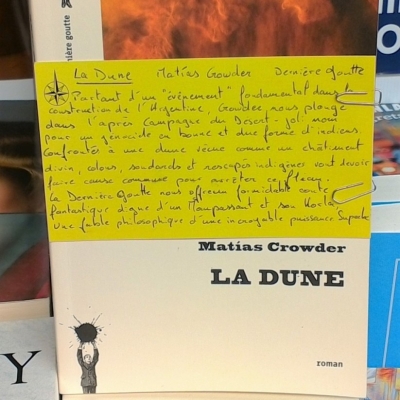 nière goutte
La Dune Matías Crowder Dernière Goutte
Partant d'un "événement" fondamental dans la
construction de l'Argentine, Crowder nous plonge
dans l'après Campagne du Désert - joli nom
pour un génocide en bonne et due forme d'indiens.
Confrontés à une dune vécue comme un châtiment
divin, colons, soudards et rescapés indigènes vont devoir
faire cause commune pour arrêter ce fléau.
La Dernière Goutte nous offre un formidable conte
fantastique digne d'un Maupassant et son Horla.
Une fable philosophique d'une incroyable puissance. Superbe
Matías Crowder
LA DUNE
roman
Y